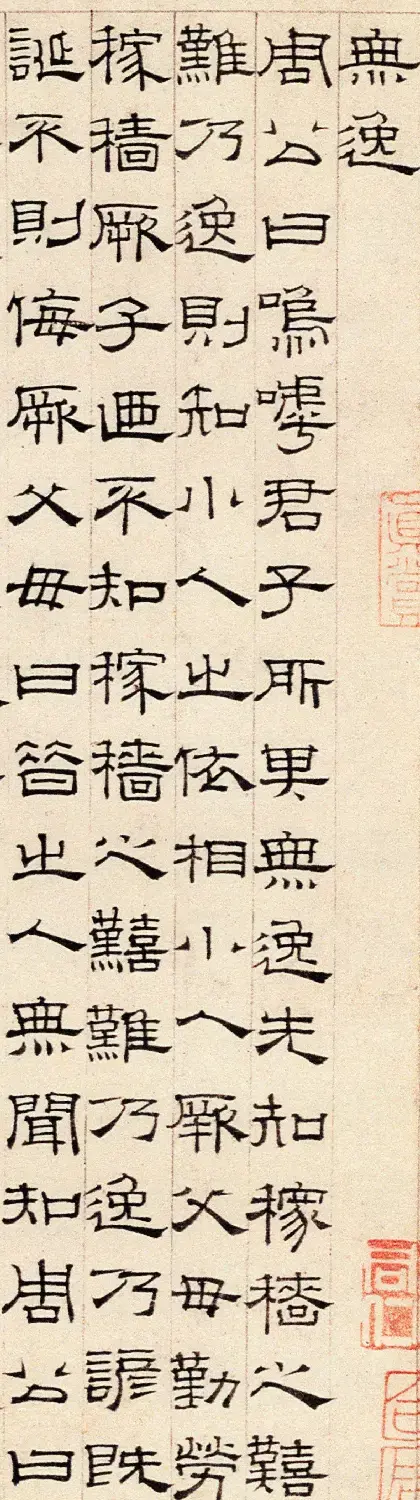 無逸
周公曰嗚嘑君子所其無逸先知稼穡之囏
難乃逸則知小人之依相小人厥父母勤勞
稼穡厥子迺不知稼穡之囏難乃逸乃諺既
誕不則侮厥父母曰昔之人無聞知周公曰